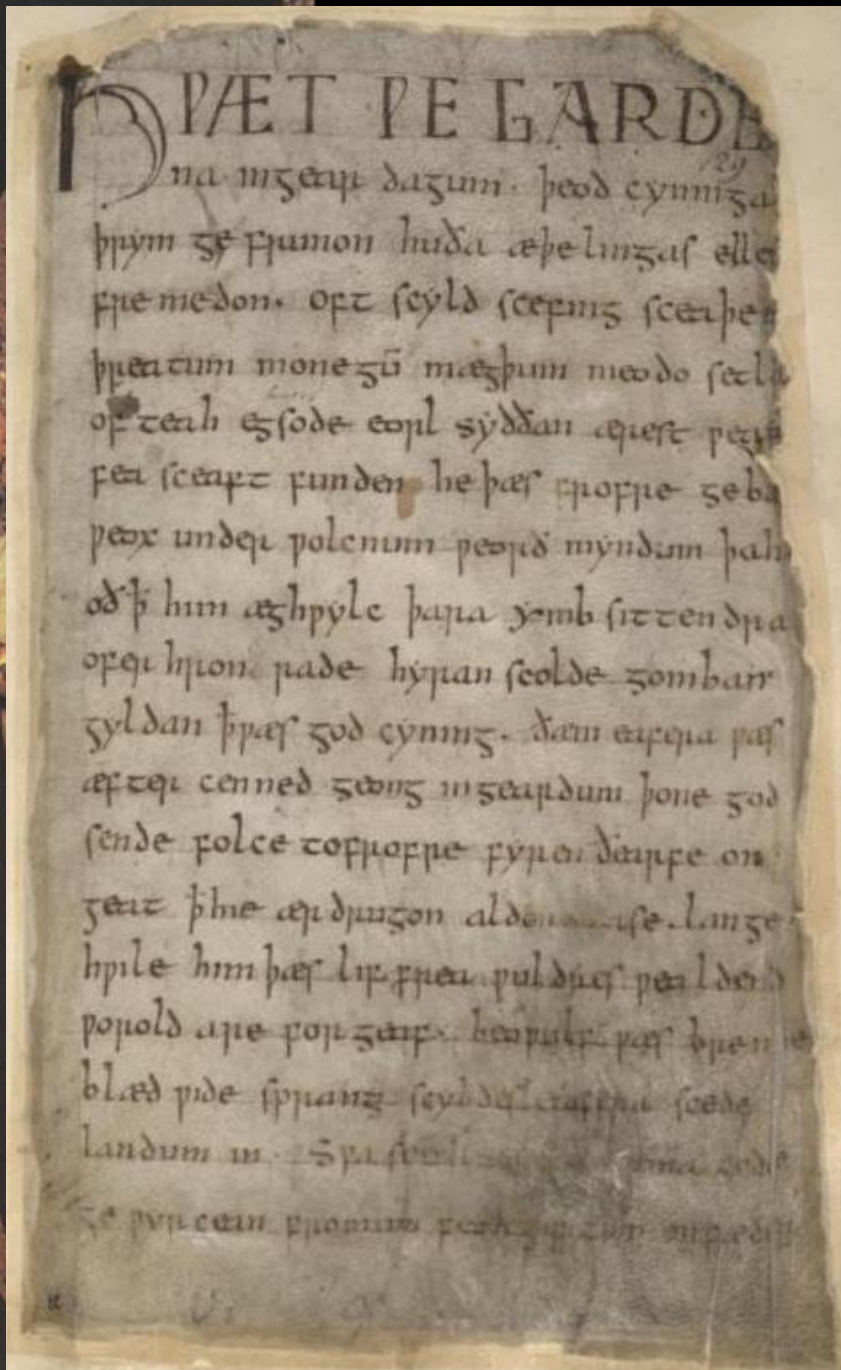 HǷÆT ǷE GARDE
na ingear dagum. þeod cyninga
þrym ge frunon huða æþelingas elle
fremedon. oft scyld scefing sceaþe
þreatum monegū mægþum meodo setla
of teah egsode eorl syððan ærest ƿear
fea sceaft funden he þæs frofre geba
ƿeox under ƿolcnum ƿeorð myndum þah
oð ꝥ him æghƿylc þara ymb sittendra
ofer hron rade hyran scolde gomban
gyldan ꝥ ƿæs god cyning. ðæm eafera ƿæs
æfter cenned geong ingeardum þone god
sende folce tofrofre fyren ðearfe on
geat ꝥ hie ær drugon aldor ase. lange
hƿile him þæs lif frea ƿuldres ƿealdend
ƿorold are for geaf. beoƿulf ƿæs breme
blæd ƿide sprang scyldes eafera scede
landum in. Sƿa sceal guma gode
ge ƿyrcean fromum feoh giftum
129